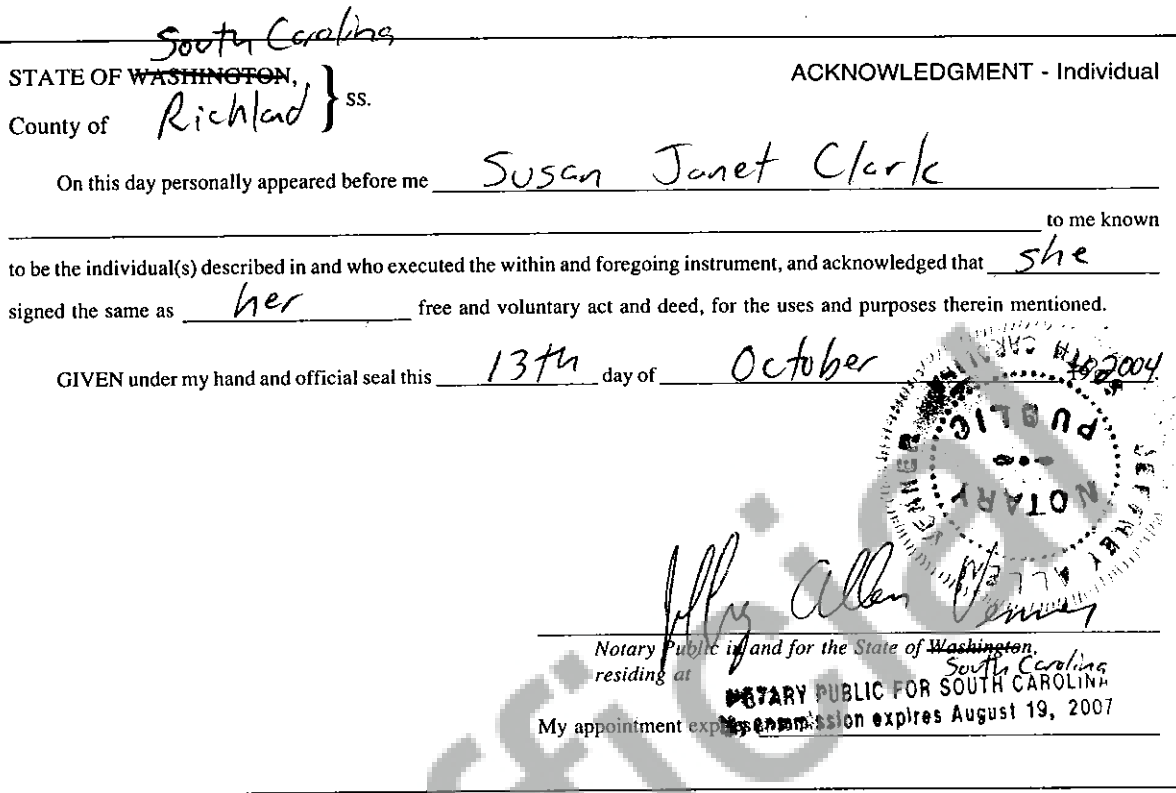 South Carolina
STATE OF WASHINGTON,
ACKNOWLEDGMENT - Individual
County of Richland } ss.
On this day personally appeared before me Susan Janet Clark
to me known
to be the individual(s) described in and who executed the within and foregoing instrument, and acknowledged that she
signed the same as her free and voluntary act and deed, for the uses and purposes therein mentioned.
GIVEN under my hand and official seal this 13th day of October 2004.
NOTARY
PUBLIC
JEFFREY ALLEN
Jeffrey Allen
Notary Public in and for the State of Washington,
South Carolina
residing at
NOTARY PUBLIC FOR SOUTH CAROLINA
My appointment expires
My commission expires August 19, 2007